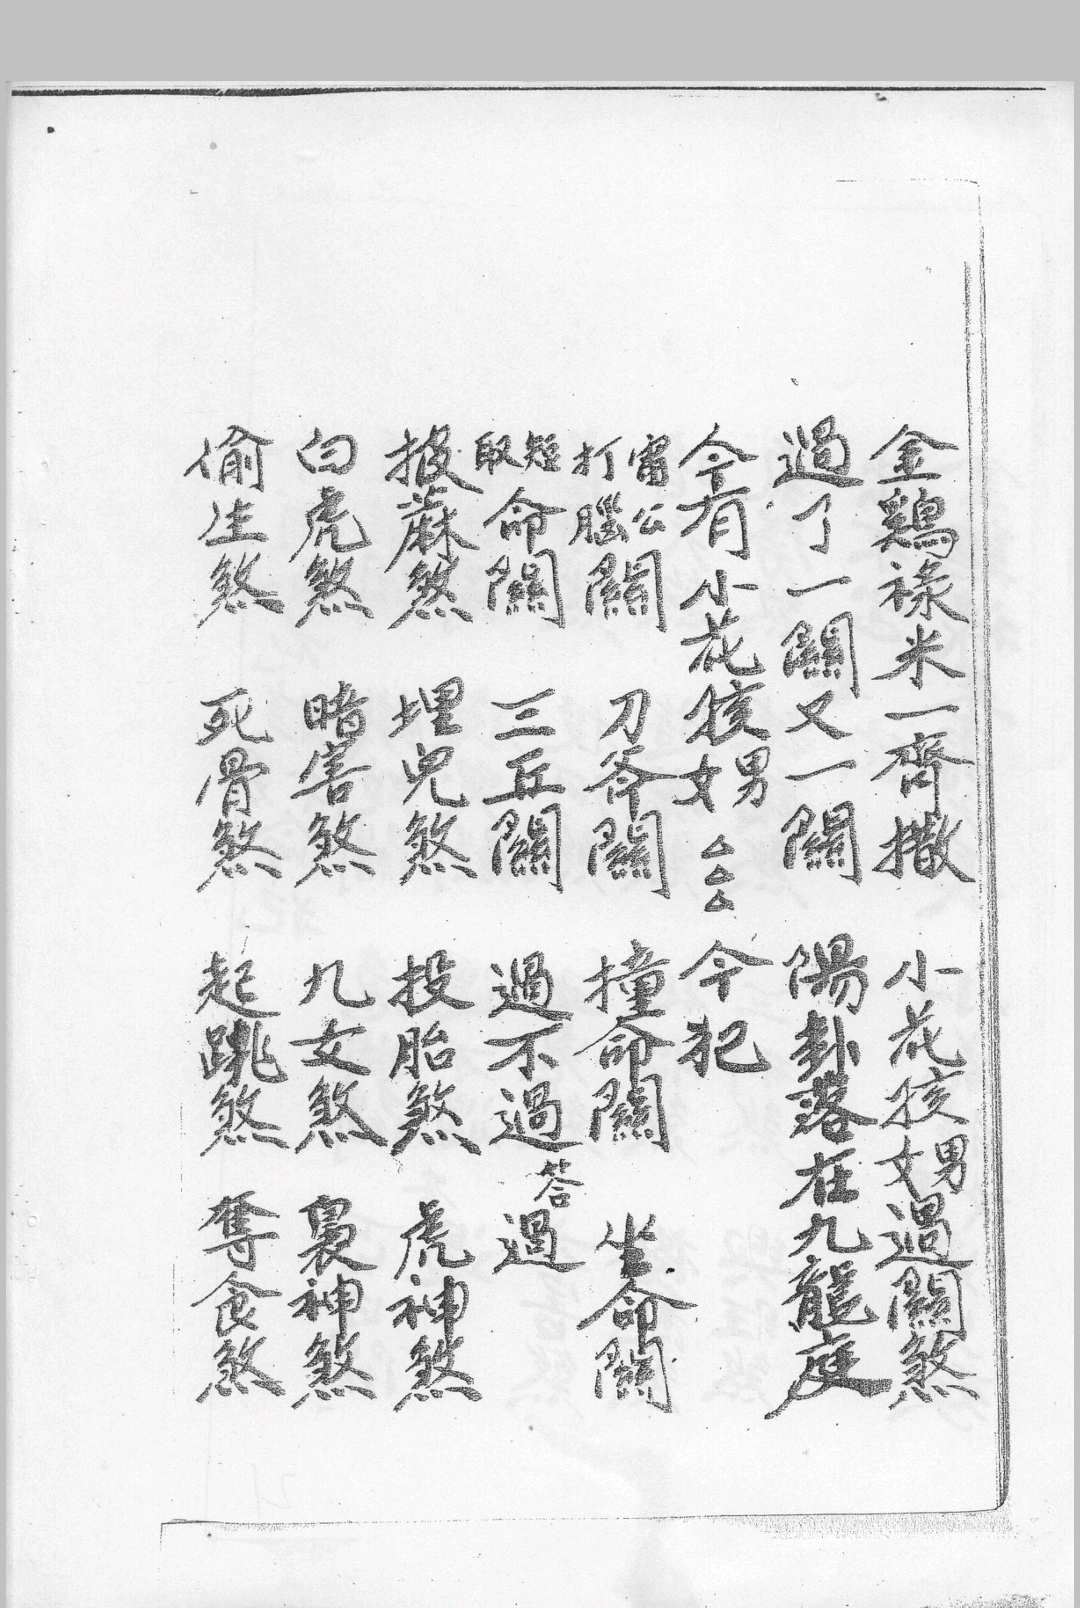 金鷄祿米一齊撒　小花孩男女過關煞
過了一關又一關　陽卦落在九龍庭
今有小花孩男女△△△　今犯
雷公打腦關　刀斧關　撞命關　坐命關
短命關　三丘關　過不過　答過
披蔴煞　埋兒煞　投胎煞　虎神煞
白虎煞　暗害煞　九女煞　裏神煞
偷生煞　死骨煞　起跳煞　奪食煞